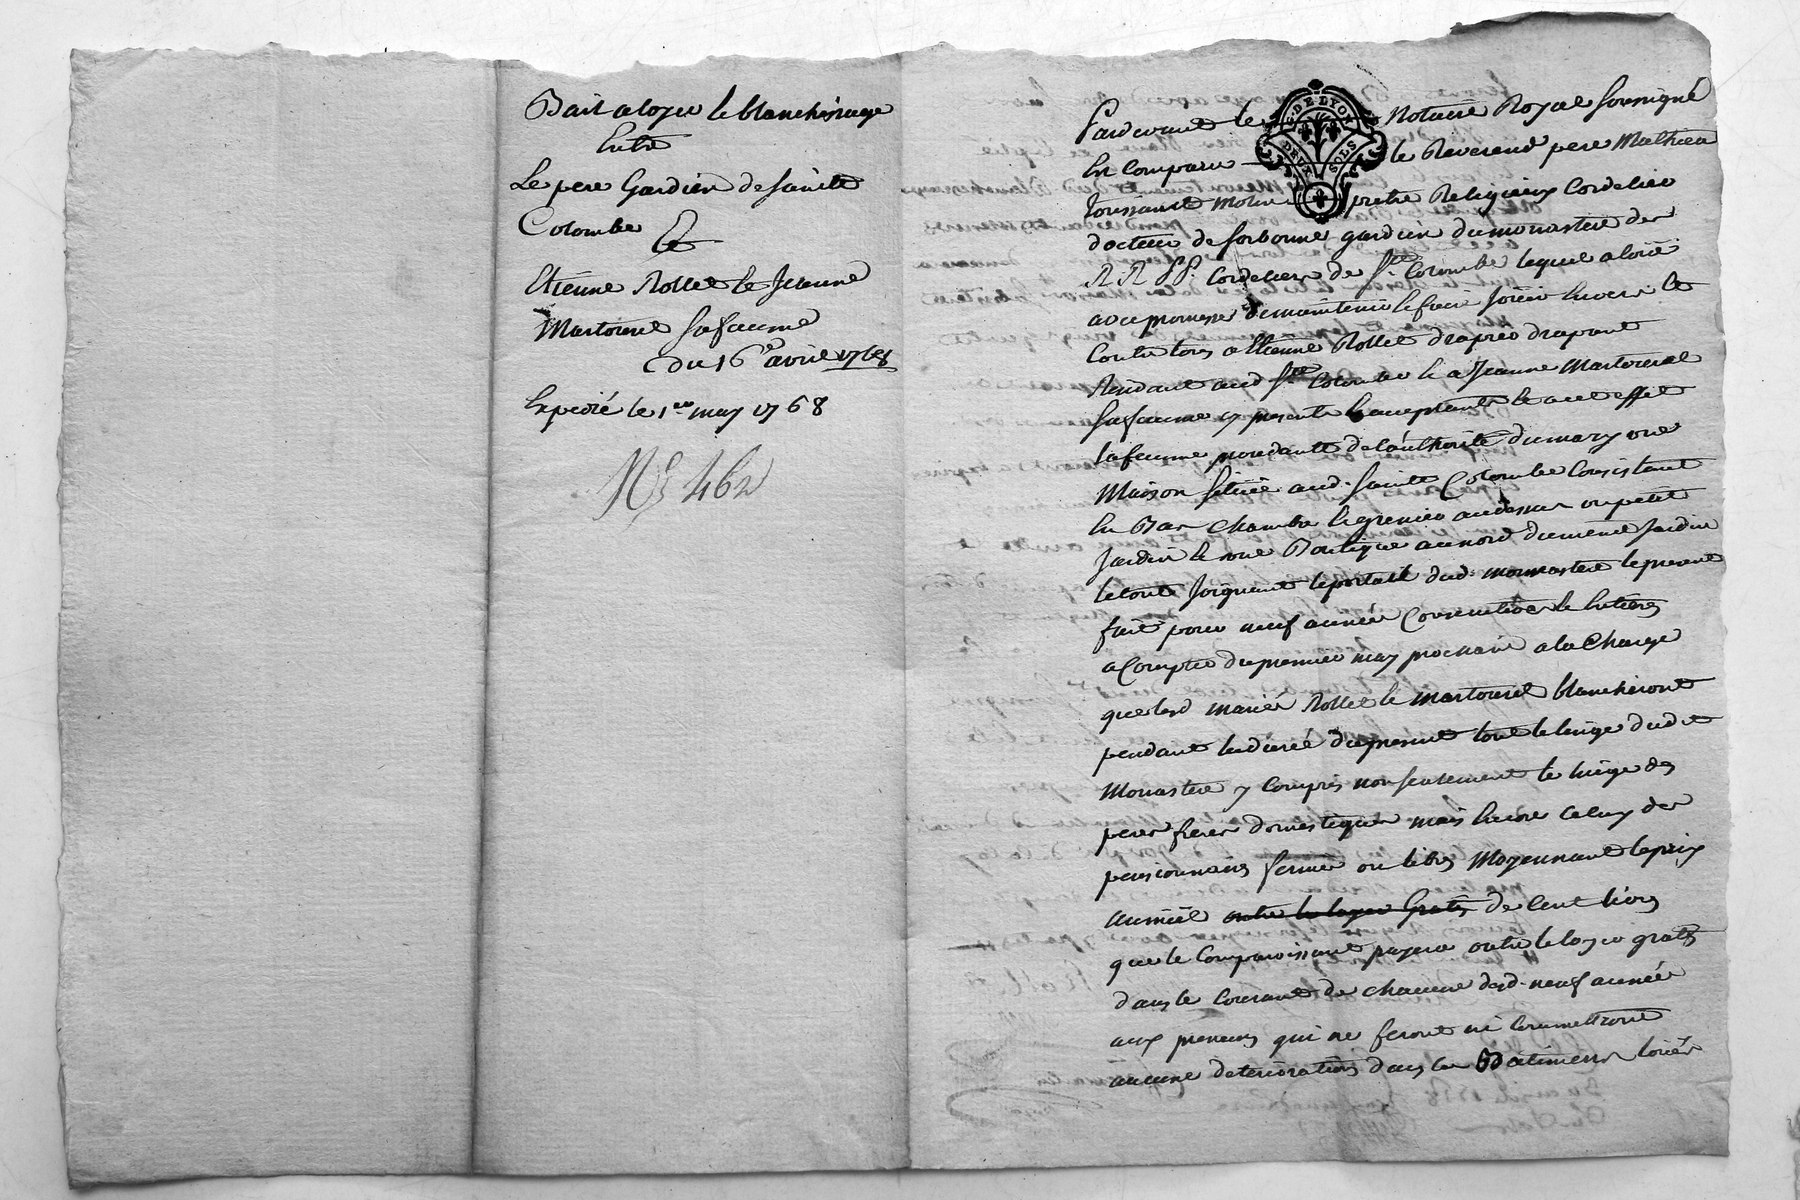 Bail a loyer le blanchissage
Entre
Le pere Gardien de Sainte
Colombe
Et
Etienne Rollet le Jeanne
Martourel sa femme
du 16e avril 1768
Expedié le 1er may 1768
No 462
G. DE LYON
DEUX SOLS
Pardevant le Notaire Royal soussigné
En comparu le Reverend pere Mathieu
Toussaint pretre Religieux Cordelier
docteur de sorbonne gardien du monastere des
R.R. PP. Cordeliers de Ste Colombe lequel a loüé
avec promesse de maintenir et faire joüir Envers et
Contre tous a Etienne Rollet drapant
Residant aud Ste Colombe Et a Jeanne Martourel
sa femme y presents Et acceptants Et a cet effet
la femme procedante de l'authorité du mary une
Maison située aud. Sainte Colombe Consistant
En Bas Chambre Et grenier au dessus un petit
Jardin Et une Boutique au nord du meme Jardin
le tout Joignant le portail dud. monnastere le present
fait pour neuf année Consecutives Et Entieres
a Compter du premier may prochain a la Charge
que lesd mariés Rollet Et Martourel blanchiront
pendant la durée du present tout le linge dudit
Monastere y Compris non seulement le linge des
peres freres domestiques mais Encore Celuy des
pensionnaires fermés ou libres Moyennant le prix
annüel outre le loyer Gratis de Cent livres
que le Comparoissant payera outre le loyer gratis
dans le Courant de Chacune desd. neuf année
aux preneurs qui ne feront ni Commettront
aucune deteriorations dans les Batimens loüés